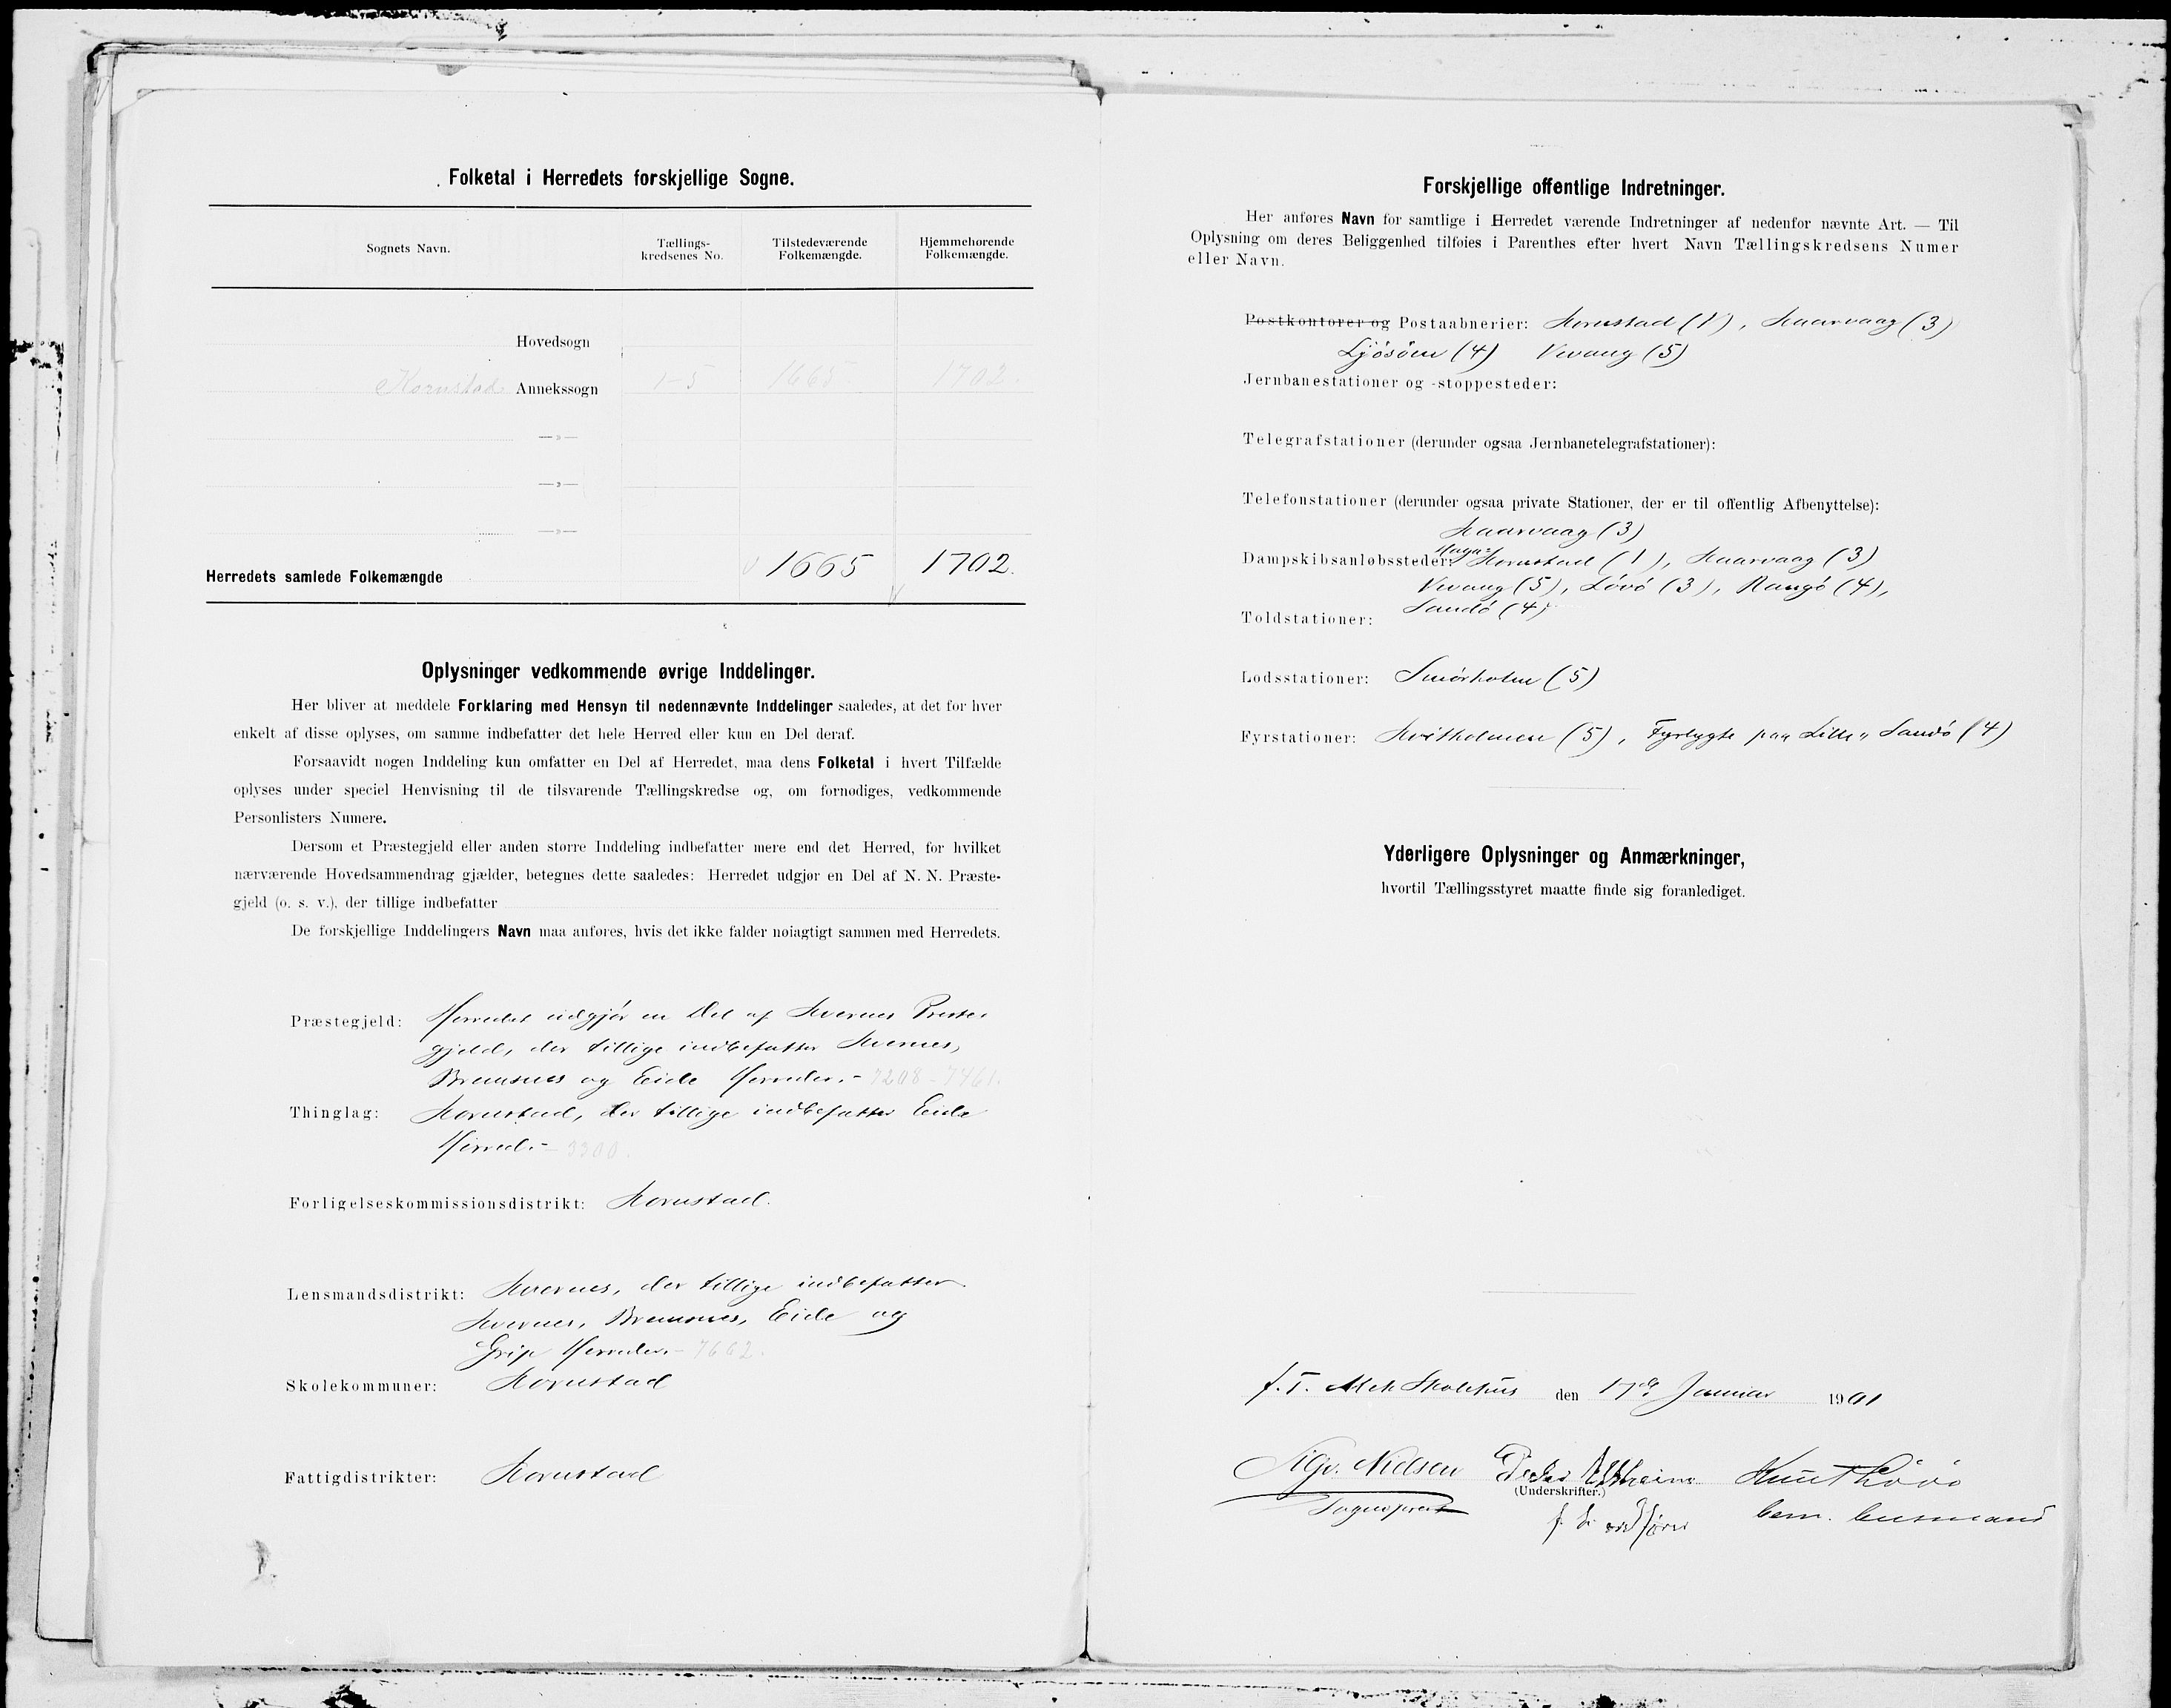 Folketal i Herredets forskjellige Sogne.
Sognets Navn.
Tællings-
kredsenes No.
Tilstedeværende
Folkemængde.
Hjemmehørende
Folkemængde.
Hovedsogn
Kornstad Annekssogn 1-5 1665 1702.
—»—
—»—
—»—
Herredets samlede Folkemængde 1665 1702.
Oplysninger vedkommende øvrige Inddelinger.
Her bliver at meddele Forklaring med Hensyn til nedennævnte Inddelinger saaledes, at det for hver
enkelt af disse oplyses, om samme indbefatter det hele Herred eller kun en Del deraf.
Forsaavidt nogen Inddeling kun omfatter en Del af Herredet, maa dens Folketal i hvert Tilfælde
oplyses under speciel Henvisning til de tilsvarende Tællingskredse og, om fornødiges, vedkommende
Personlisters Numere.
Dersom et Præstegjeld eller anden større Inddeling indbefatter mere end det Herred, for hvilket
nærværende Hovedsammendrag gjælder, betegnes dette saaledes: Herredet udgjør en Del af N. N. Præste-
gjeld (o. s. v.), der tillige indbefatter
De forskjellige Inddelingers Navn maa anføres, hvis det ikke falder nøiagtigt sammen med Herredets.
Præstegjeld: Herredet udgjør en Del af Kvernes Preste-
gjeld, der tillige indbefatter Kvernes,
Bremsnes og Eide Herreder. - 7208 - 7461.
Thinglag: Kornstad, der tillige indbefatter Eide
Herred. - 3300.
Forligelseskommissionsdistrikt: Kornstad.
Lensmandsdistrikt: Kvernes, der tillige indbefatter
Kvernes, Bremsnes, Eide og
Grip Herreder. - 7662.
Skolekommuner: Kornstad
Fattigdistrikter: Kornstad
Forskjellige offentlige Indretninger.
Her anføres Navn for samtlige i Herredet værende Indretninger af nedenfor nævnte Art. — Til
Oplysning om deres Beliggenhed tilføies i Parenthes efter hvert Navn Tællingskredsens Numer
eller Navn.
Postkontorer og Postaabnerier: Kornstad (1), Kaarvaag (3)
Ljøsøen (4) Vevang (5)
Jernbanestationer og -stoppesteder:
Telegrafstationer (derunder ogsaa Jernbanetelegrafstationer):
Telefonstationer (derunder ogsaa private Stationer, der er til offentlig Afbenyttelse):
Kaarvaag (3)
Dampskibsanløbssteder: Kornstad (1), Kaarvaag (3)
Vevang (5), Løvø (3), Rangø (4),
Sandø (4)
Toldstationer:
Lodsstationer: Smørholm (5)
Fyrstationer: Kvitholmen (5), Fyrlygte paa Lille Sandø (4)
Yderligere Oplysninger og Anmærkninger,
hvortil Tællingsstyret maatte finde sig foranlediget.
f. T. Skolehus den 17de Januar 1901
Nielsen Peder Knut Løvø
(Underskrifter.)
Sogneprest